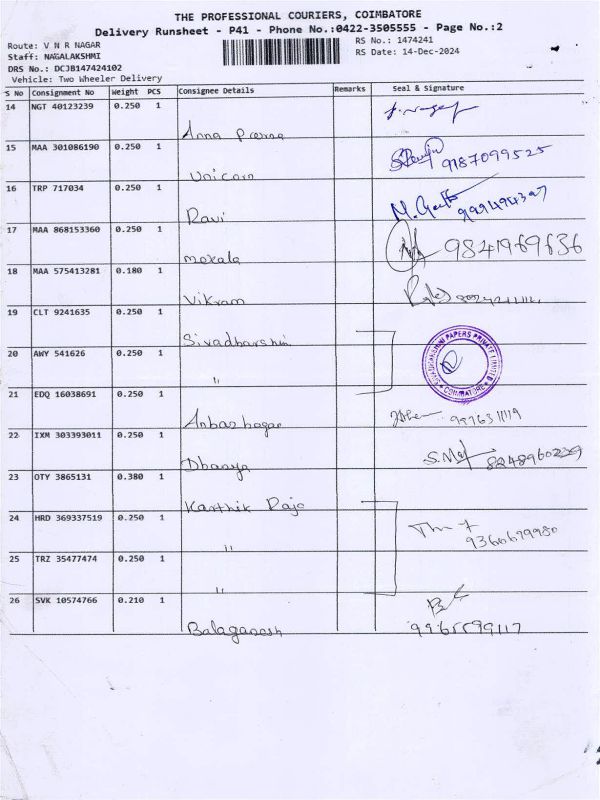 THE PROFESSIONAL COURIERS, COIMBATORE
Delivery Runsheet - P41 - Phone No.:0422-3505555 - Page No.:2
Route: V N R NAGAR RS No.: 1474241
Staff: NAGALAKSHMI RS Date: 14-Dec-2024
DRS No.: DCJB147424102
Vehicle: Two Wheeler Delivery
S No Consignment No Weight PCS Consignee Details Remarks Seal & Signature
14 NGT 40123239 0.250 1
Anna Poorna
15 MAA 301086190 0.250 1
Unicorn 9187099525
16 TRP 717034 0.250 1
Ravi
17 MAA 868153360 0.250 1
mekala 9841969636
18 MAA 575413281 0.180 1
Vikram
19 CLT 9241635 0.250 1
Sivadharshini
20 AWY 541626 0.250 1
"
SIVADHARSHINI PAPERS PRIVATE LIMITED
COIMBATORE
21 EDQ 16038691 0.250 1
Anbazhagan
22 IXM 303393011 0.250 1
Dhanya 8248960239
23 OTY 3865131 0.380 1
Karthik Raja
24 HRD 369337519 0.250 1
"
25 TRZ 35477474 0.250 1
"
26 SVK 10574766 0.210 1
Balaganesh